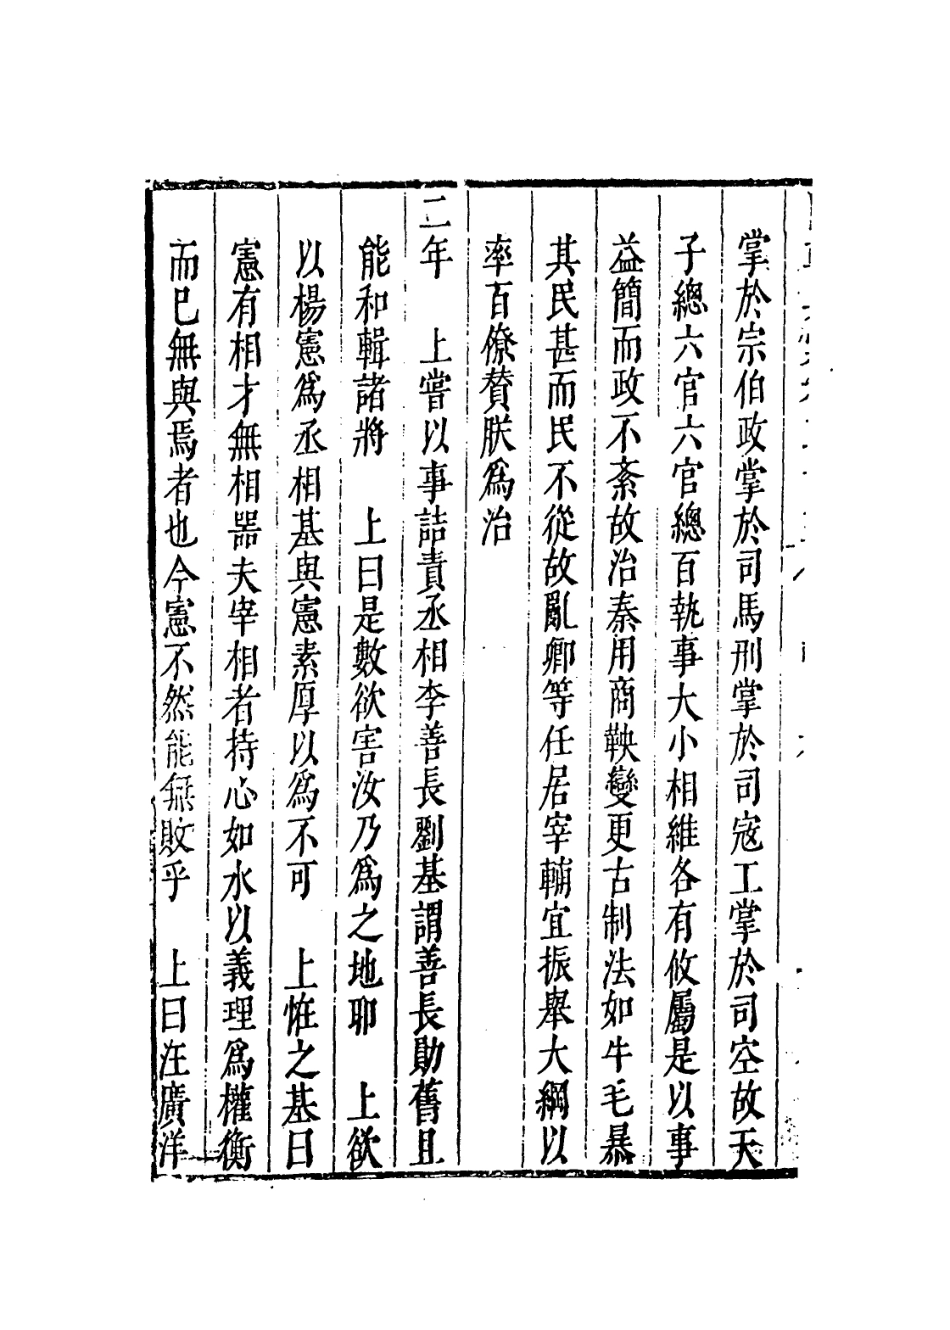 掌於宗伯政掌於司馬刑掌於司寇工掌於司空故天
子總六官六官總百執事大小相維各有攸屬是以事
益簡而政不紊故治秦用商鞅變更古制法如牛毛暴
其民甚而民不從故亂卿等任居宰輔宜振舉大綱以
率百僚贊朕爲治
二年　上嘗以事詰責丞相李善長劉基謂善長勛舊且
能和輯諸將　上曰是數欲害汝乃爲之地耶　上欲
以楊憲爲丞相基與憲素厚以爲不可　上怪之基曰
憲有相才無相器夫宰相者持心如水以義理爲權衡
而已無與焉者也今憲不然能無敗乎　上曰汪廣洋